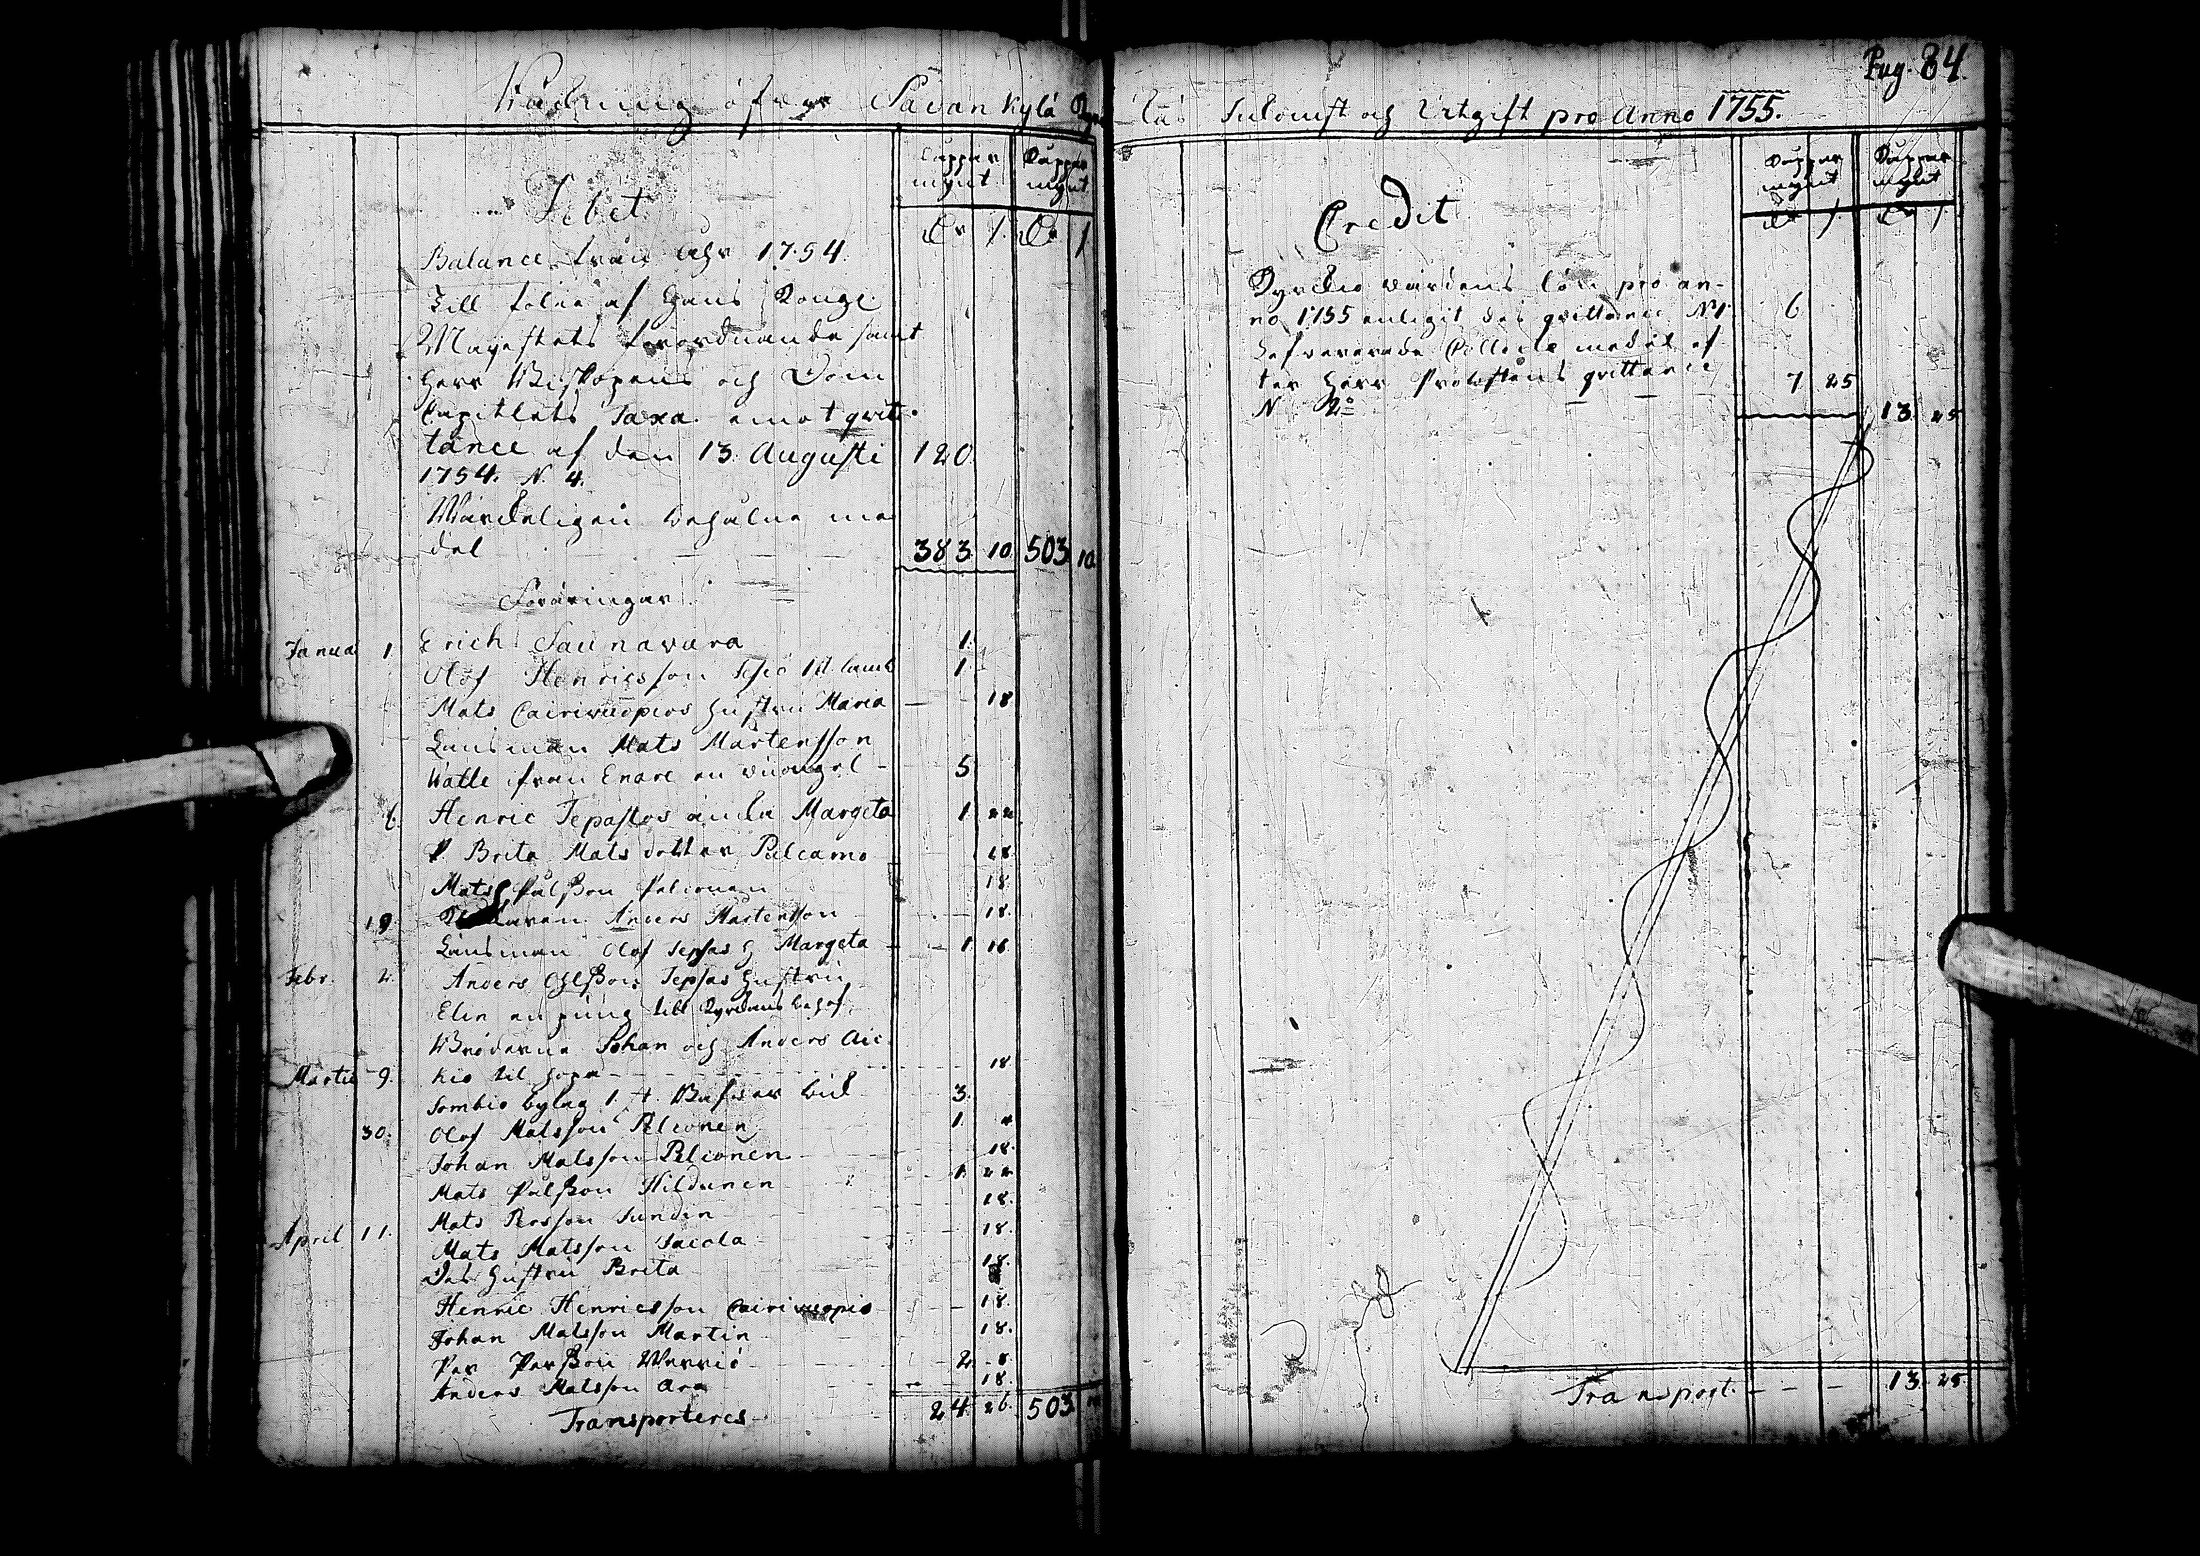 Räckning öfver Sawan Kylä Kyrc-
kas Inkomst och Utgift pro Anno 1755.
Pag. 84.
Debet
Kopper mynt Kopper mynt
Dr / Dr /
Balance från åhr 1754.
Till följe af Hans Kongl.
Mayestets förordnande samt
Herr Biskopens och Dom
Capitlets Taxa emot qvit-
tance af den 13 Augusti 120.
1754. N. 4.
Wärckeligen behålne me
del 383. 10. 503. 10
Föräringar
Janua 1 Erich Saunawara 1.
Olof Henricsson 1.
Mats Cairivuopios hustru Maria 18
Länsman Mats Mårtensson
Walle från Enare en 5
6. Henric Jepastos änka Margeta 1 22
P. Brita Mats dotter Palcamo 18
Mats Pålsson Palconen 18
19. Anders Mårtensson 18.
Länsman Olof Jepsas h Margeta 1 16
Febr. 2. Anders Ohlsson Jepsas hustru
Elin en pung till Kyrckans behof
Bröderna Johan och Anders Aic
Martii 9. kio til hopa 18
Sombio bylag 1 t. 3.
30. Olof Matsson Pelconen 1.
Johan Matsson Pelconen 18.
Mats Pålsson Hildunen 1 22
Mats Persson Sundin 18.
April 11. Mats Matsson Saiola 18.
Des hustru Brita 18.
Henric Henricsson Cairivuopio 18.
Johan Matsson Martin 18.
Per Persson Werriö 2. 8
Anders Matsson Ara 18.
Transporteres 24. 26. 503
Credit
Kopper mynt Kopper mynt
Dr / Dr /
Kyrckio wärdens lön pro an-
no 1755 enligit des qvittance N 1 6
Lefvererade Collecte medel ef
ter Herr Probstens qvittance 7 25
N 2º 13. 25
Transport. 13. 25